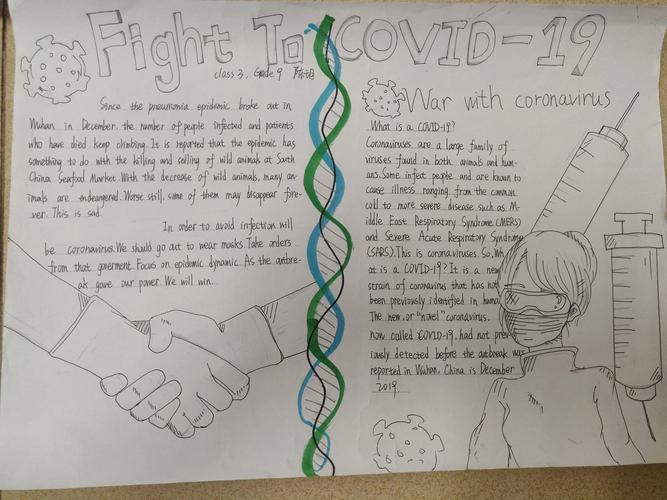 Fight To COVID-19
class 3, Grade 9
Since the pneumonia epidemic broke out in
Wuhan in December, the number of people infected and patients
who have died keep climbing. It is reported that the epidemic has
something to do with the killing and selling of wild animals at South
China Seafood Market. With the decrease of wild animals, many an-
imals are endangered. Worse still, some of them may disappear fore-
ver. This is sad.
In order to avoid infection will
be coronavirus. We should go out to wear masks. Take orders
from that goverment. Focus on epidemic dynamic. As the outbre-
ak gave our power. We will win.
War with coronavirus
What is a COVID-19?
Coronaviruses are a large family of
viruses found in both animals and hum-
ans. Some infect people and are known to
cause illness ranging from the common
cold to more severe disease such as M-
iddle East Respiratory Syndrome (MERS)
and Severe Acute Respiratory Syndrome
(SARS). This is coronaviruses. So, Wh
at is a COVID-19? It is a new
strain of coronavirus that has not
been previously identified in huma
The new, or "novel" coronavirus,
now called COVID-19, had not prev
iously detected before the outbreak was
reported in Wuhan, China is December
2019.